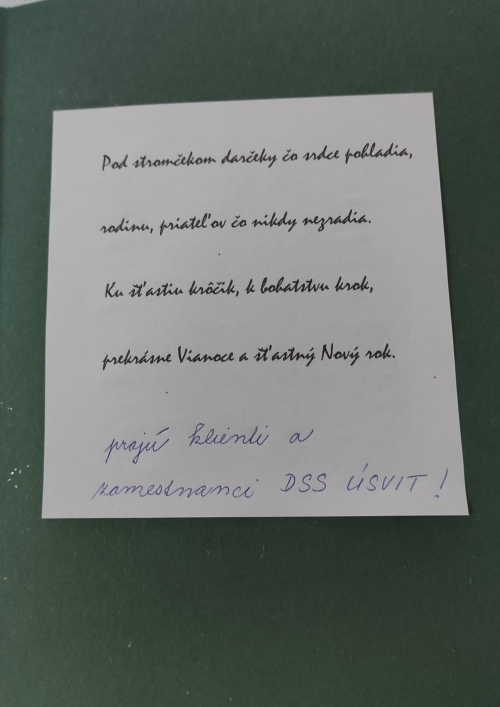 Pod stromčekom darčeky čo srdce pohladia,
rodinu, priateľov čo nikdy nezradia.
Ku šťastiu krôčik, k bohatstvu krok,
prekrásne Vianoce a šťastný Nový rok.
prajú klienti a
zamestnanci DSS ÚSVIT!